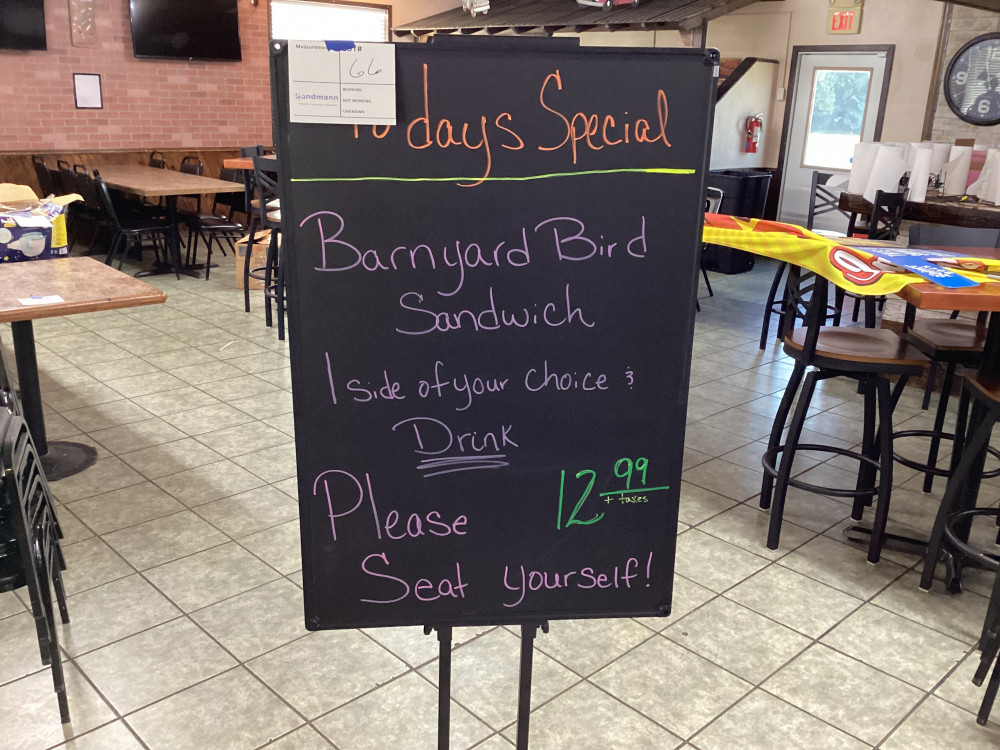 66
WORKING
NOT WORKING
UNKNOWN
Todays Special
Barnyard Bird
Sandwich
1 side of your choice &
Drink
Please
12.99
+ taxes
Seat yourself!
EXIT